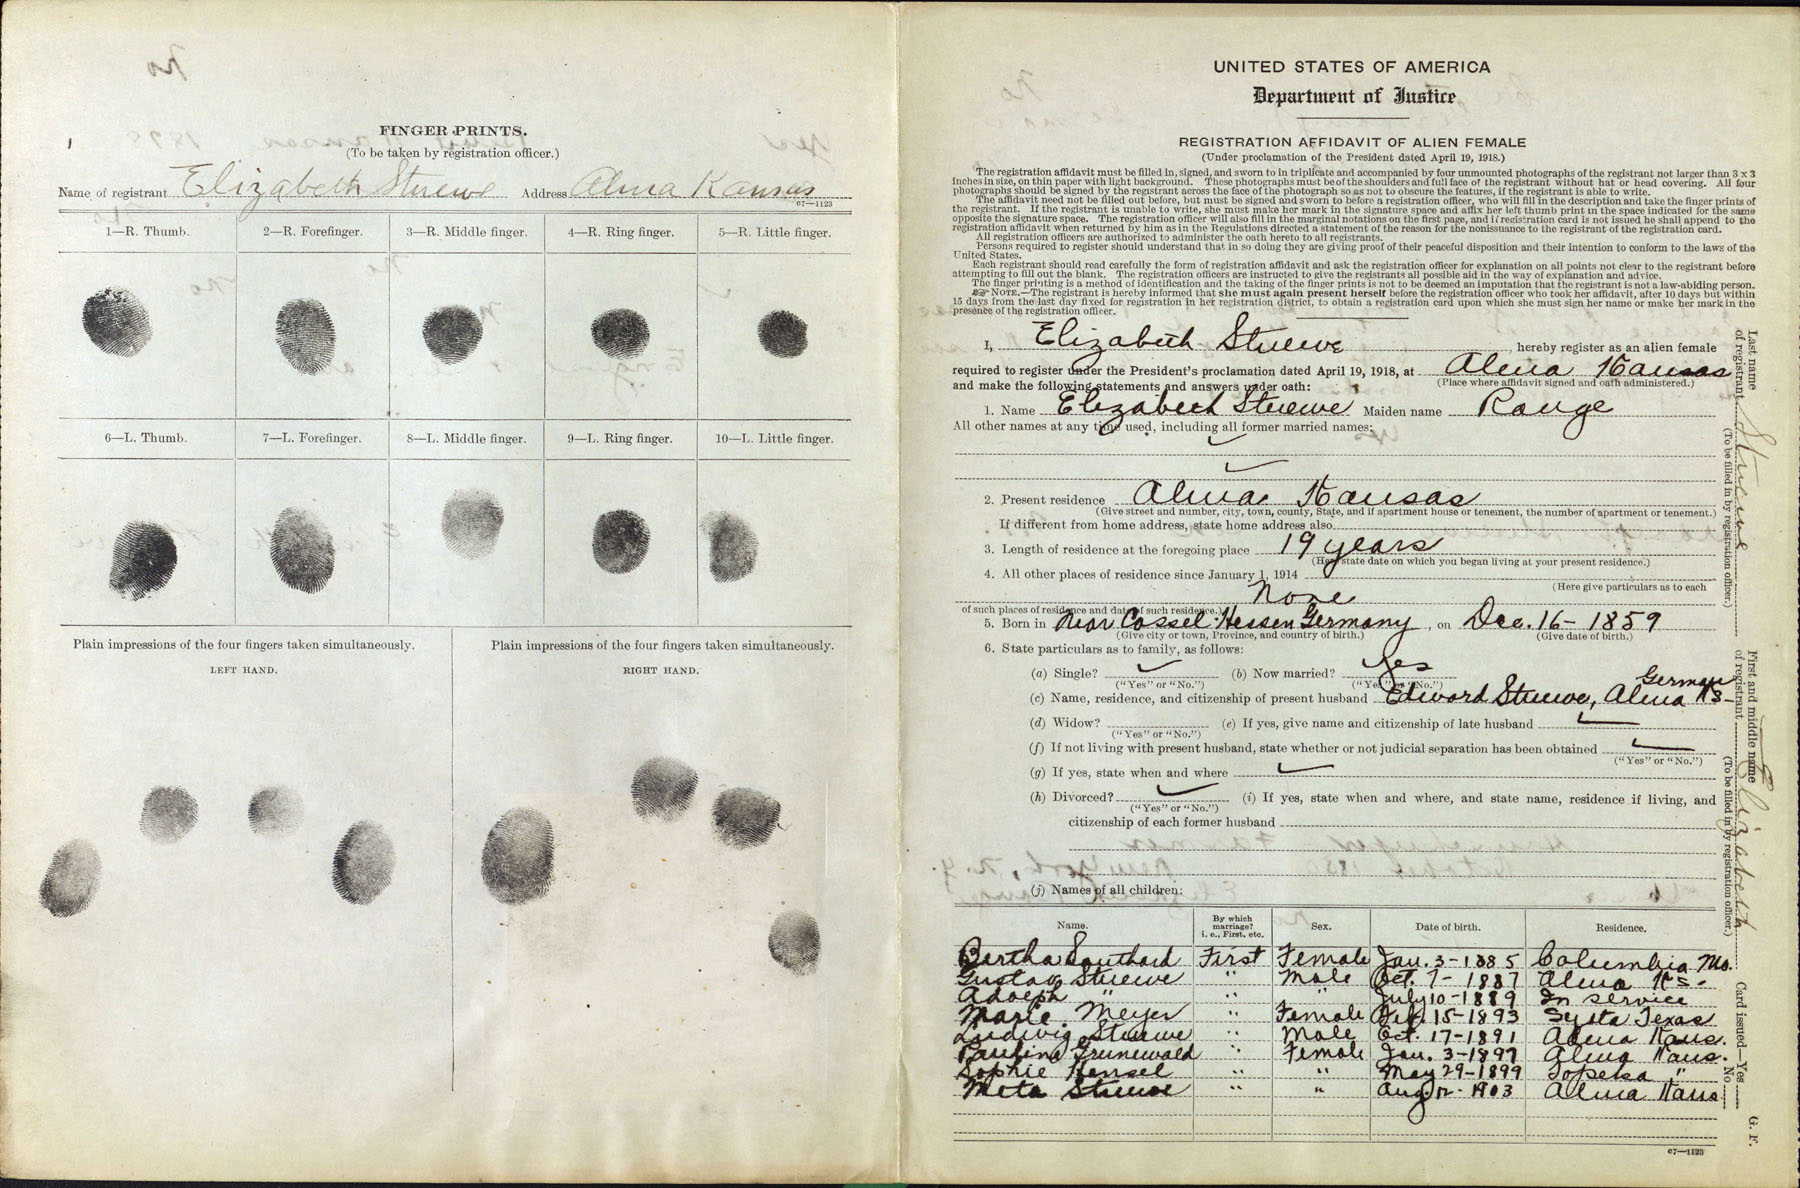 FINGER PRINTS.
(To be taken by registration officer.)
Name of registrant Elizabeth Stuewe Address Alma Kansas
67—1123
1—R. Thumb. 2—R. Forefinger. 3—R. Middle finger. 4—R. Ring finger. 5—R. Little finger.
6—L. Thumb. 7—L. Forefinger. 8—L. Middle finger. 9—L. Ring finger. 10—L. Little finger.
Plain impressions of the four fingers taken simultaneously. Plain impressions of the four fingers taken simultaneously.
LEFT HAND. RIGHT HAND.
UNITED STATES OF AMERICA
Department of Justice
REGISTRATION AFFIDAVIT OF ALIEN FEMALE
(Under proclamation of the President dated April 19, 1918.)
The registration affidavit must be filled in, signed, and sworn to in triplicate and accompanied by four unmounted photographs of the registrant not larger than 3 x 3
inches in size, on thin paper with light background. These photographs must be of the shoulders and full face of the registrant without hat or head covering. All four
photographs should be signed by the registrant across the face of the photograph so as not to obscure the features, if the registrant is able to write.
The affidavit need not be filled out before, but must be signed and sworn to before a registration officer, who will fill in the description and take the finger prints of
the registrant. If the registrant is unable to write, she must make her mark in the signature space and affix her left thumb print in the space indicated for the same
opposite the signature space. The registration officer will also fill in the marginal notations on the first page, and if registration card is not issued he shall append to the
registration affidavit when returned by him as in the Regulations directed a statement of the reason for the nonissuance to the registrant of the registration card.
All registration officers are authorized to administer the oath hereto to all registrants.
Persons required to register should understand that in so doing they are giving proof of their peaceful disposition and their intention to conform to the laws of the
United States.
Each registrant should read carefully the form of registration affidavit and ask the registration officer for explanation on all points not clear to the registrant before
attempting to fill out the blank. The registration officers are instructed to give the registrants all possible aid in the way of explanation and advice.
The finger printing is a method of identification and the taking of the finger prints is not to be deemed an imputation that the registrant is not a law-abiding person.
NOTE.—The registrant is hereby informed that she must again present herself before the registration officer who took her affidavit, after 10 days but within
15 days from the last day fixed for registration in her registration district, to obtain a registration card upon which she must sign her name or make her mark in the
presence of the registration officer.
I, Elizabeth Stuewe, hereby register as an alien female
required to register under the President's proclamation dated April 19, 1918, at Alma Kansas
and make the following statements and answers under oath: (Place where affidavit signed and oath administered.)
1. Name Elizabeth Stuewe Maiden name Range
All other names at any time used, including all former married names:
2. Present residence Alma Kansas
(Give street and number, city, town, county, State, and if apartment house or tenement, the number of apartment or tenement.)
If different from home address, state home address also
3. Length of residence at the foregoing place 19 years
(Here state date on which you began living at your present residence.)
4. All other places of residence since January 1, 1914
(Here give particulars as to each
None
of such places of residence and date of such residence.)
5. Born in Near Cassel Hessen Germany, on Dec. 16 - 1859
(Give city or town, Province, and country of birth.) (Give date of birth.)
6. State particulars as to family, as follows:
(a) Single? (b) Now married? Yes
("Yes" or "No.") ("Yes" or "No.")
German
(c) Name, residence, and citizenship of present husband Edward Stuewe, Alma Ks-
(d) Widow? (e) If yes, give name and citizenship of late husband
("Yes" or "No.")
(f) If not living with present husband, state whether or not judicial separation has been obtained
("Yes" or "No.")
(g) If yes, state when and where
(h) Divorced? (i) If yes, state when and where, and state name, residence if living, and
("Yes" or "No.")
citizenship of each former husband
(j) Names of all children:
Name. By which marriage? i. e., First, etc. Sex. Date of birth. Residence.
Bertha Southard First Female Jan. 3-1885 Columbia Mo.
Gustav Stuewe " Male Oct. 7- 1887 Alma Ks.
Adolph " " " July 10-1889 In service
Marie Meyer " Female Feb. 15-1893 Texas
Ludwig Stuewe " Male Oct. 17-1891 Alma Kans.
Paulina Grunewald " Female Jan. 3-1897 Alma Kans.
Sophie Hensel " " May 29-1899 Topeka "
Meta Stuewe " " Aug. 12- 1903 Alma Kans
67—1123
Last name of registrant Stuewe
(To be filled in by registration officer.)
First and middle name of registrant Elizabeth
(To be filled in by registration officer.)
Card issued—Yes
No
G. F.